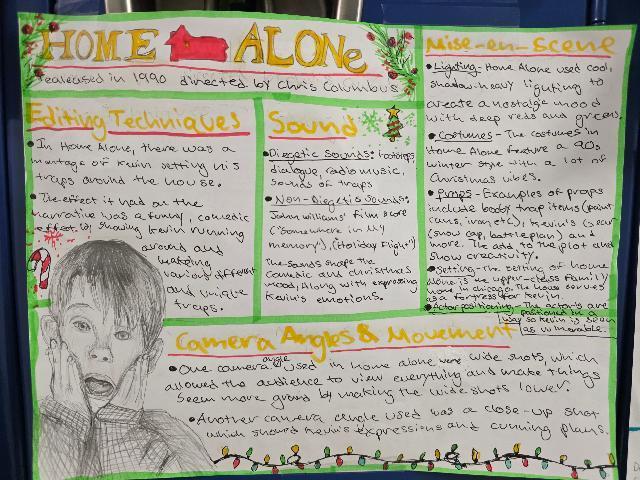 HOME ALONE
Realeased in 1990 directed by Chris Columbus
Editing Techniques
• In Home Alone, there was a
montage of Kevin setting his
traps around the house.
• The effect it had on the
narrative was a funny, comedic
effect by showing Kevin running
around and
making
various different
and unique
traps.
Sound
• Diegetic Sounds: footsteps,
dialogue, radio music,
sounds of traps
• Non-Diegetic Sounds:
John Williams' film score
("Somewhere in My
memory"), (Holiday Flight")
The sounds shape the
comedic and christmas
mood, Along with expressing
Kevin's emotions.
Mise-en-Scene
• Lighting-Home Alone used cool,
shadow-heavy lighting to
create a nostalgic mood
with deep reds and greens.
• Costumes - The costumes in
Home Alone feature a 90s
winter style with a lot of
Christmas vibes.
• Props - Examples of props
include booby trap items (paint
cans, iron, etc), Kevin's
(snow cap, battle plan) and
more. The add to the plot and
show creativity.
• Setting-The setting of home
alone is the upper-class family
home in chicago. The house serves
as a fortress for Kevin.
• Actor positioning - The actors are
positioned in a
way so Kevin is seen
as vulnerable.
Camera Angles & Movement
• One camera angle used in home alone were wide shots which
allowed the audience to view everything and make things
seem more grand by making the wide shots lower.
• Another camera angle used was a close-up shot
which showed Kevin's expressions and cunning plans.